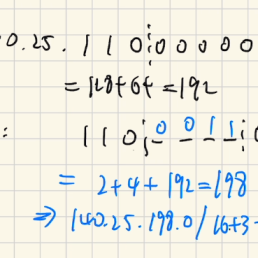 0.25.110¦00000
=128+64=192
: 110¦0011¦0
= 2+4+192=198
⇒ 140.25.198.0/16+3